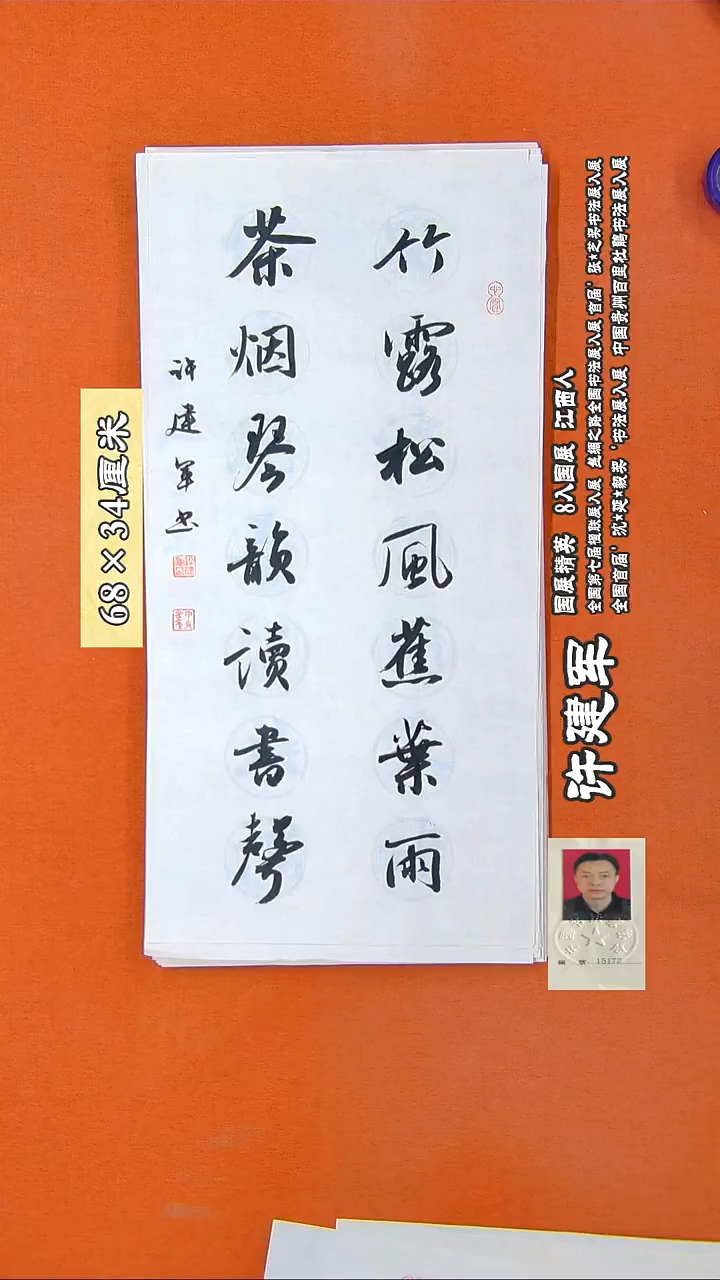 竹露松風蕉葉雨
茶烟琴韻讀書聲
许建军书
68×34厘米
国展精英 8入国展 江西人
全国第七届楹联展入展 丝绸之路全国书法展入展 首届’张★芝奖书法展入展
全国首届’沈★延★毅奖‘书法展入展 中国贵州百里杜鹃书法展入展
许建军
编 号：15172